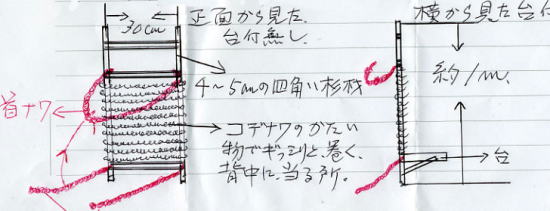 30cm
正面から見た
台付無し.
横から見た台付
4〜5cmの四角い杉材
約1m.
首ナワ
コデナワのかたい
物でギッシリと、巻く、
背中に、当る所。
台